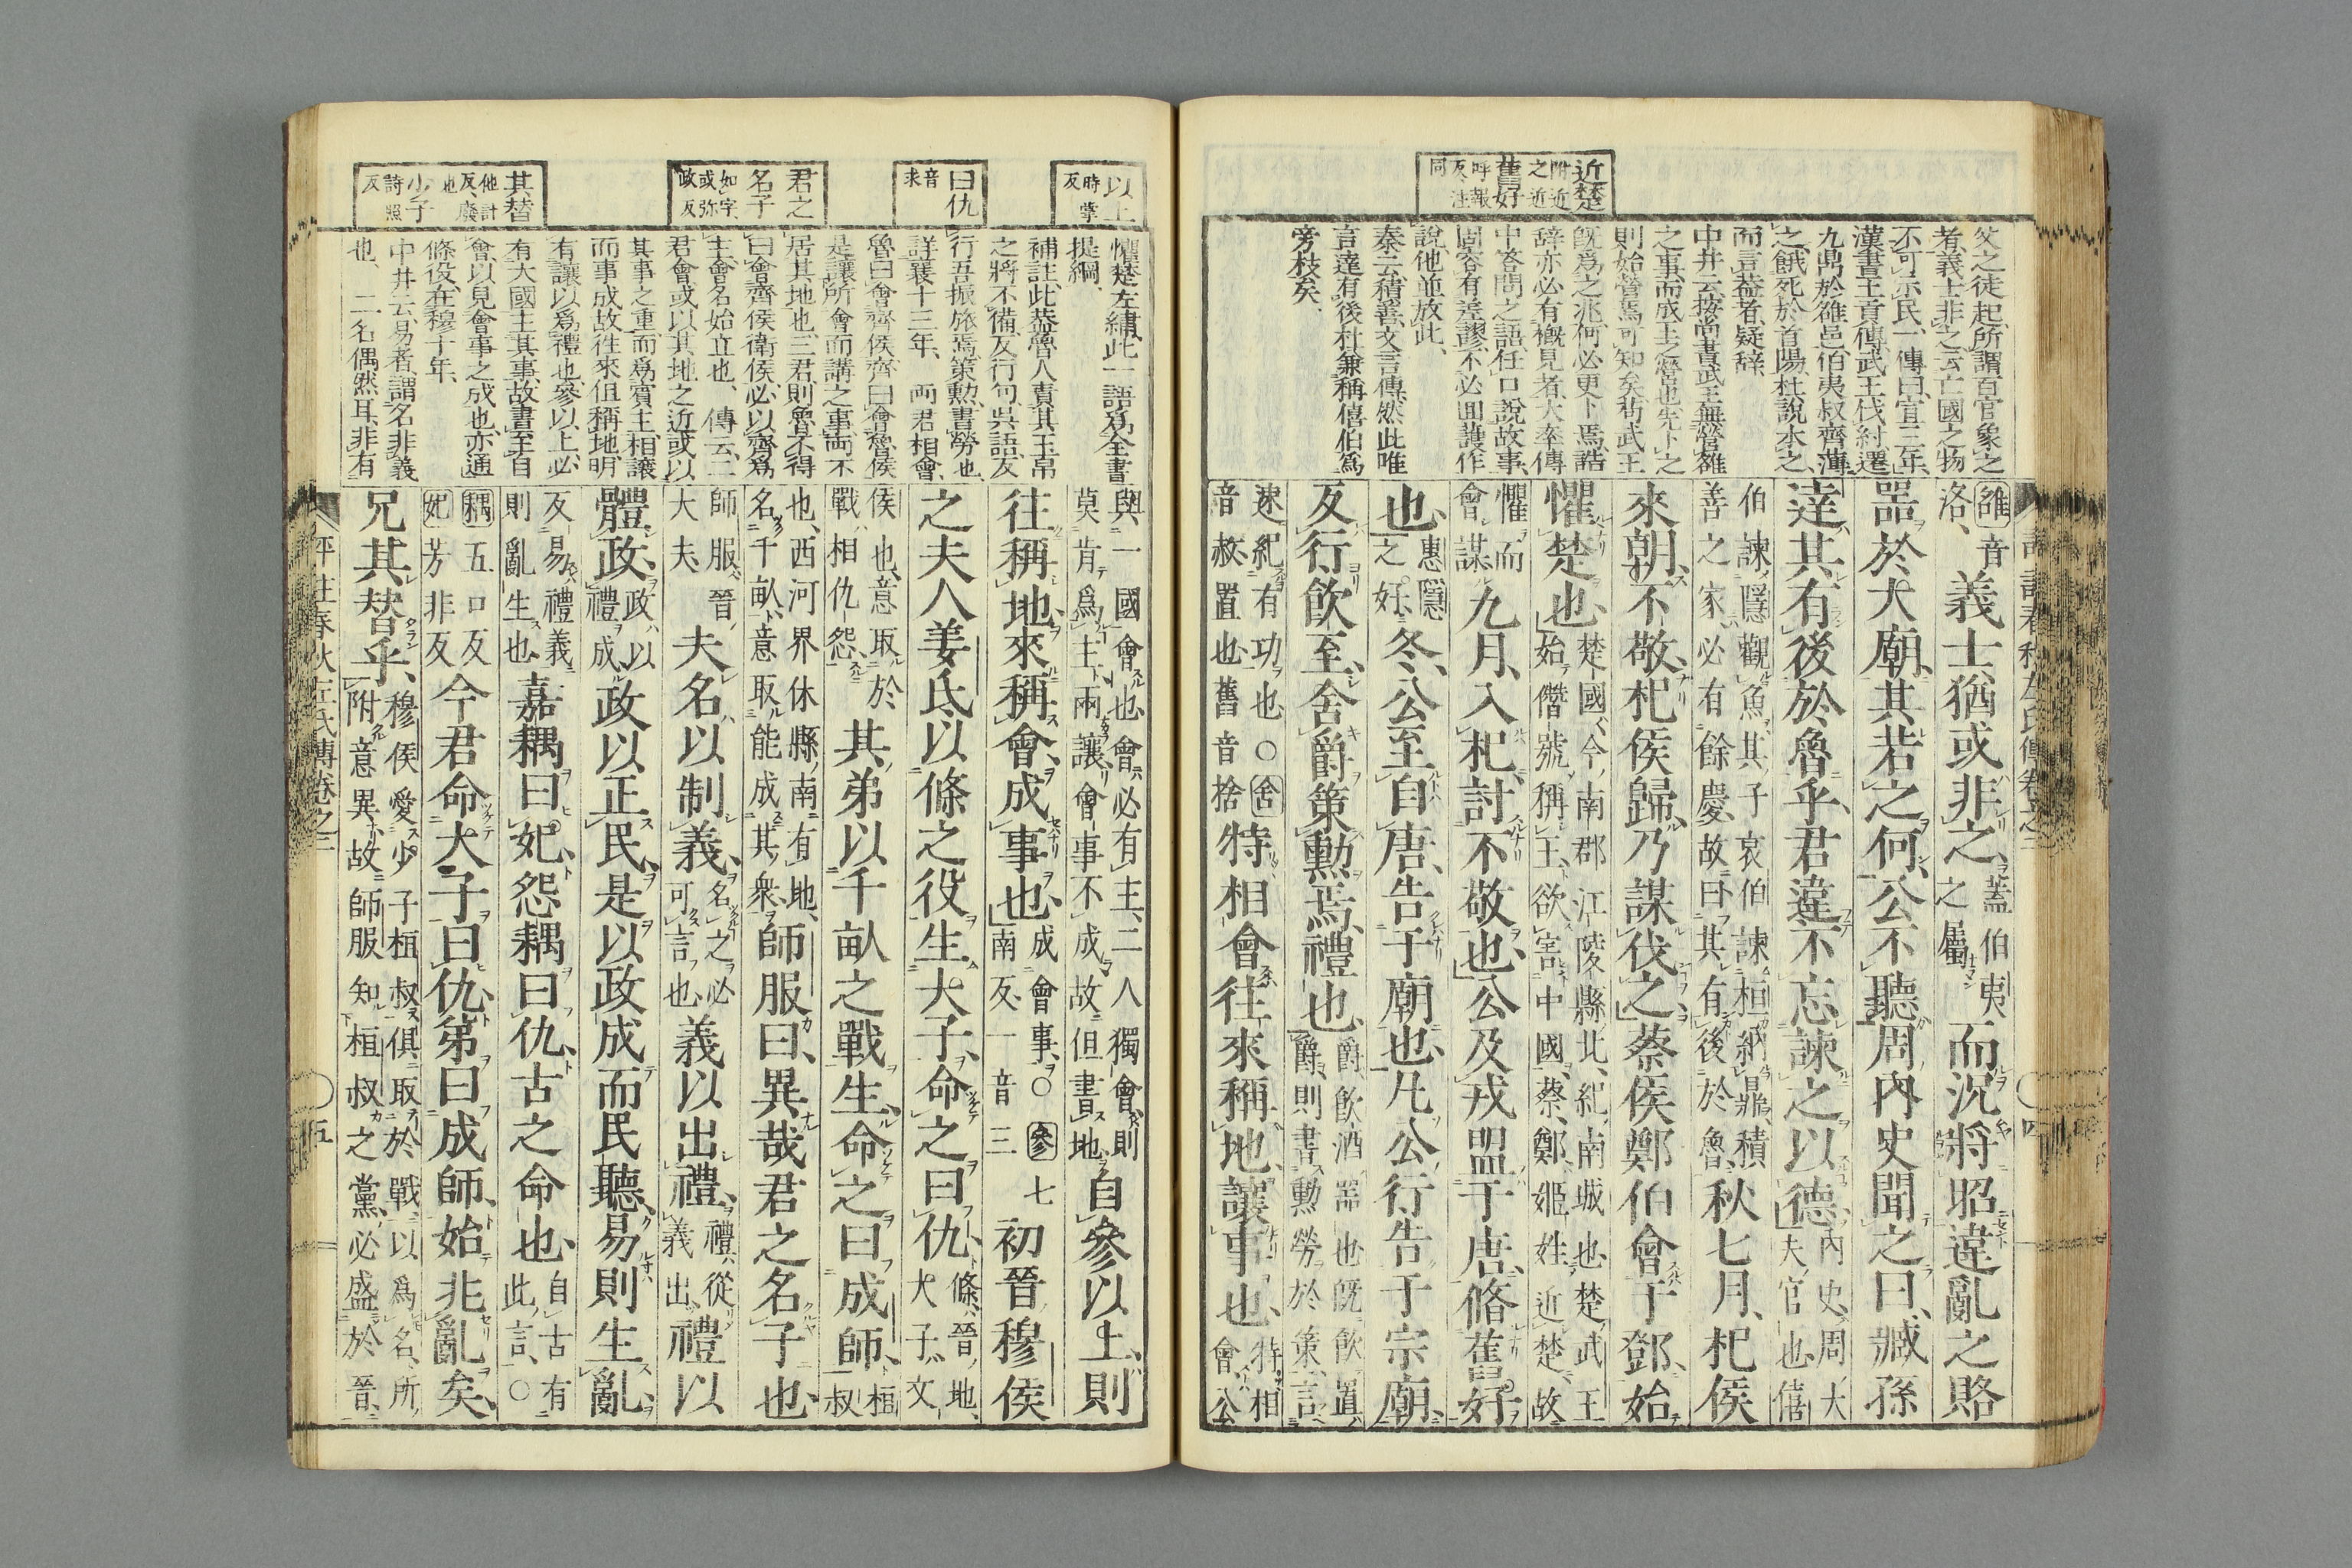 近楚 附近之近
舊好 呼報反、注同
父之徒起、所謂百官象之
者、義士非之、云亡國之物
不可示民、一傳曰、宣三年、
漢書王貢傳、武王伐紂、遷
九鼎於雒邑、伯夷叔齊薄
之、餓死於首陽、杜說本之、
而言蓋者、疑辭、
中井云、按尚書、武王無營雒
之事、而成王之營也、先卜之
則始營焉可知矣、若武王
既爲之兆、何必更卜焉、誥
辭亦必有槪見者、大率傳
中答問之語、任口說故事、
固容有差謬、不必回護作
說、他並放此、
秦云、積善、文言傳、然此唯
言達有後、杜兼稱僖伯爲
旁枝矣、
雒音洛、義士猶或非之、蓋伯夷之屬而況將昭違亂之賂
器於大廟、其若之何、公不聽、周內史聞之曰、臧孫
達其有後於魯乎、君違不忘諫之以德、內史、周大夫官也、僖
伯諫隱觀魚、其子哀伯諫桓納鼎、積善之家、必有餘慶、故曰其有後於魯、秋七月、杞侯
來朝、不敬、杞侯歸、乃謀伐之、蔡侯鄭伯會于鄧、始
懼楚也、楚國、今南郡江陵縣北、紀南城也、楚武王始僭號稱王、欲害中國、蔡鄭姬姓、近楚、故
懼而會謀九月、入杞、討不敬也、公及戎盟于唐、脩舊好
也、惠隱之好、冬、公至自唐、告于廟也、凡公行告于宗廟、
反行、飮至、舍爵策勳焉、禮也、爵、飮酒器也、既飮置爵、則書勳勞於策、言
速紀有功也、○舍音赦、置也、舊音捨特相會、往來稱地、讓事也、特相會、公
以上 時掌反
曰仇 音求
君之名子 如字、或弥政反
其替 他計反、廢也
少子 詩照反
懼楚、左繡、此一語爲全書
提綱、
補註、此蓋魯人責其玉帛
之將不備、反行句、吳語、反
行吾振旅焉、策勳、書勞也、
詳襄十三年、 兩君相會、
魯曰會齊侯、齊曰會魯侯
是讓所會、而講之事、兩不
居其地也、三君、則魯不得
曰會齊侯衛侯、必以齊爲
主、會名始立也、 傳云、二
君會或以其地之近、或以
其事之重、而爲賓主相讓
而事成、故往來但稱地、明
有讓以爲禮也、參以上、必
有大國主其事、故書至自
會、以見會事之成也、亦通
條役、在穆十年、
中井云、易者、謂名非義
也、 二名偶然耳、非有
與一國會也、會必有主、二人獨會、則莫肯爲主、兩讓會事不成、故但書地、自參以上、則
往稱地、來稱會、成事也、成會事、○參七南反、一音三初晉穆侯
之夫人姜氏、以條之役、生大子、命之曰仇、條、晉地、大子、文
侯也、意取於戰相仇怨、其弟以千畝之戰生、命之曰成師、桓叔
也、西河界休縣南有地、名千畝、意取能成其衆、師服曰、異哉君之名子也、
師服、晉大夫、夫名以制義、名之必可言也、義以出禮、禮從義出、禮以
體政、政以禮成、政以正民、是以政成而民聽、易則生亂、
反易禮義、則亂生也、嘉耦曰妃、怨耦曰仇、古之命也、自古有此言、○
耦五口反妃芳非反今君命大子曰仇、弟曰成師、始兆亂矣、
兄其替乎、穆侯愛少子桓叔、俱取於戰、以爲名、所附意異、故師服知桓叔之黨、必盛於晉、
評註春秋左氏傳卷之三
五